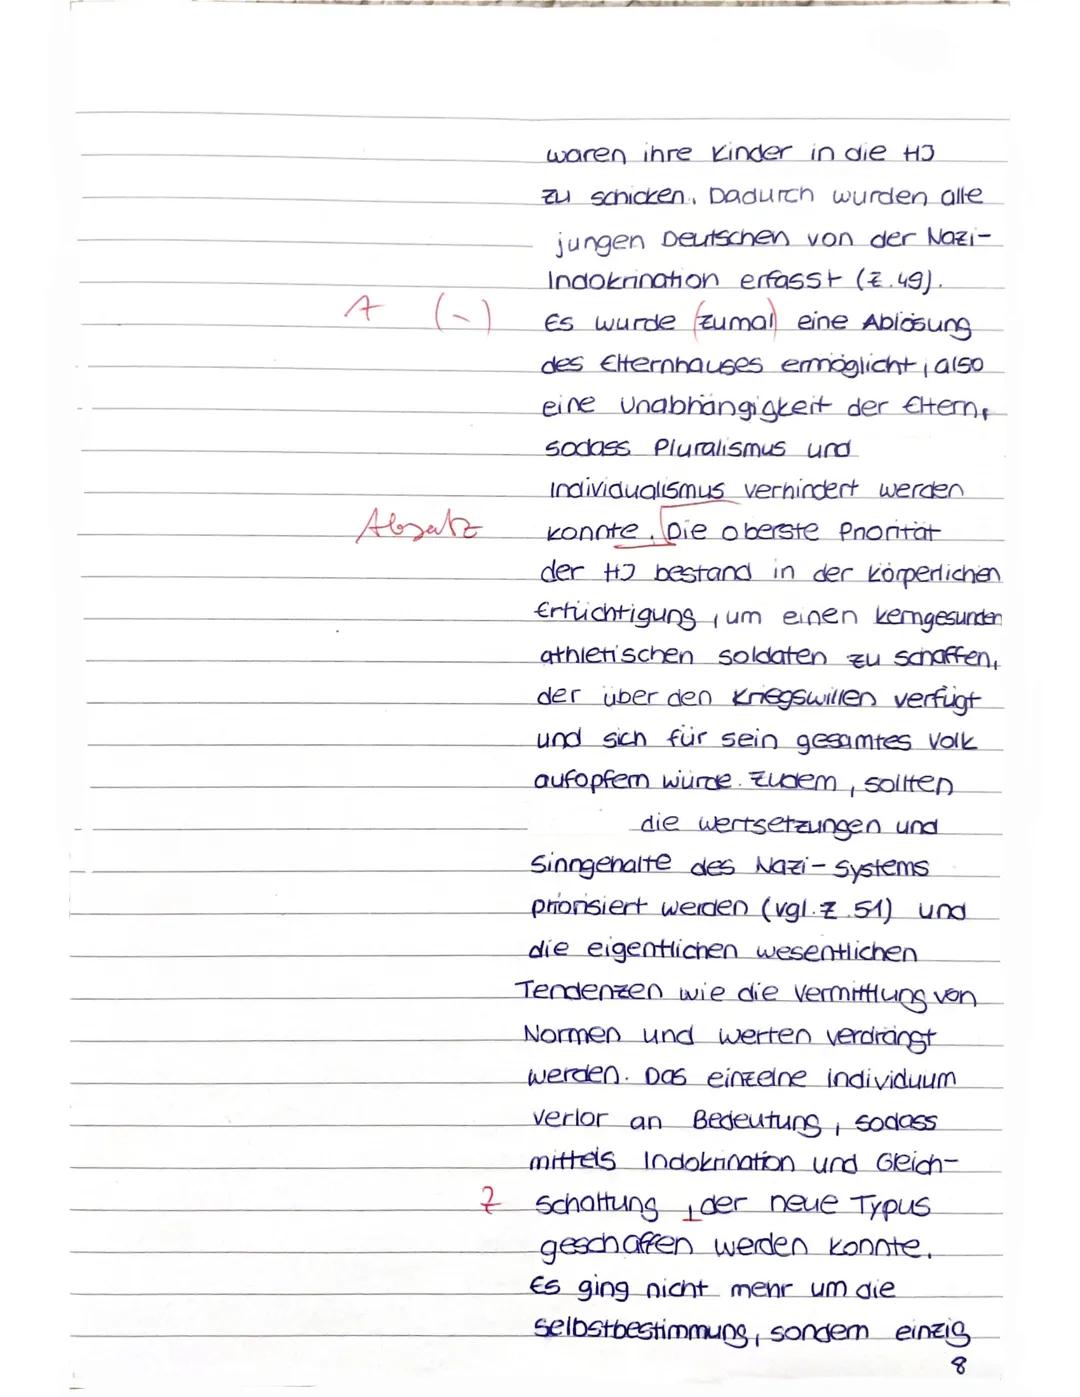 waren ihre Kinder in die HJ
zu schicken. Dadurch wurden alle
jungen Deutschen von der Nazi-
Indokrination erfasst (Z. 49).
A (-) Es wurde (zumal) eine Ablösung
des Elternhauses ermöglicht, also
eine Unabhängigkeit der Eltern,
sodass Pluralismus und
Individualismus verhindert werden
Absatz konnte. Die oberste Priorität
der HJ bestand in der körperlichen
Ertüchtigung, um einen kerngesunden
athletischen Soldaten zu schaffen,
der über den Kriegswillen verfügt
und sich für sein gesamtes Volk
aufopfern würde. Zudem, sollten
die Wertsetzungen und
Sinngehalte des Nazi-Systems
priorisiert werden (vgl. Z. 51) und
die eigentlichen wesentlichen
Tendenzen wie die Vermittlung von
Normen und Werten verdrängt
werden. Das einzelne Individuum
verlor an Bedeutung, sodass
mittels Indokrination und Gleich-
Z schaltung, der neue Typus
geschaffen werden konnte.
Es ging nicht mehr um die
Selbstbestimmung, sondern einzig
8